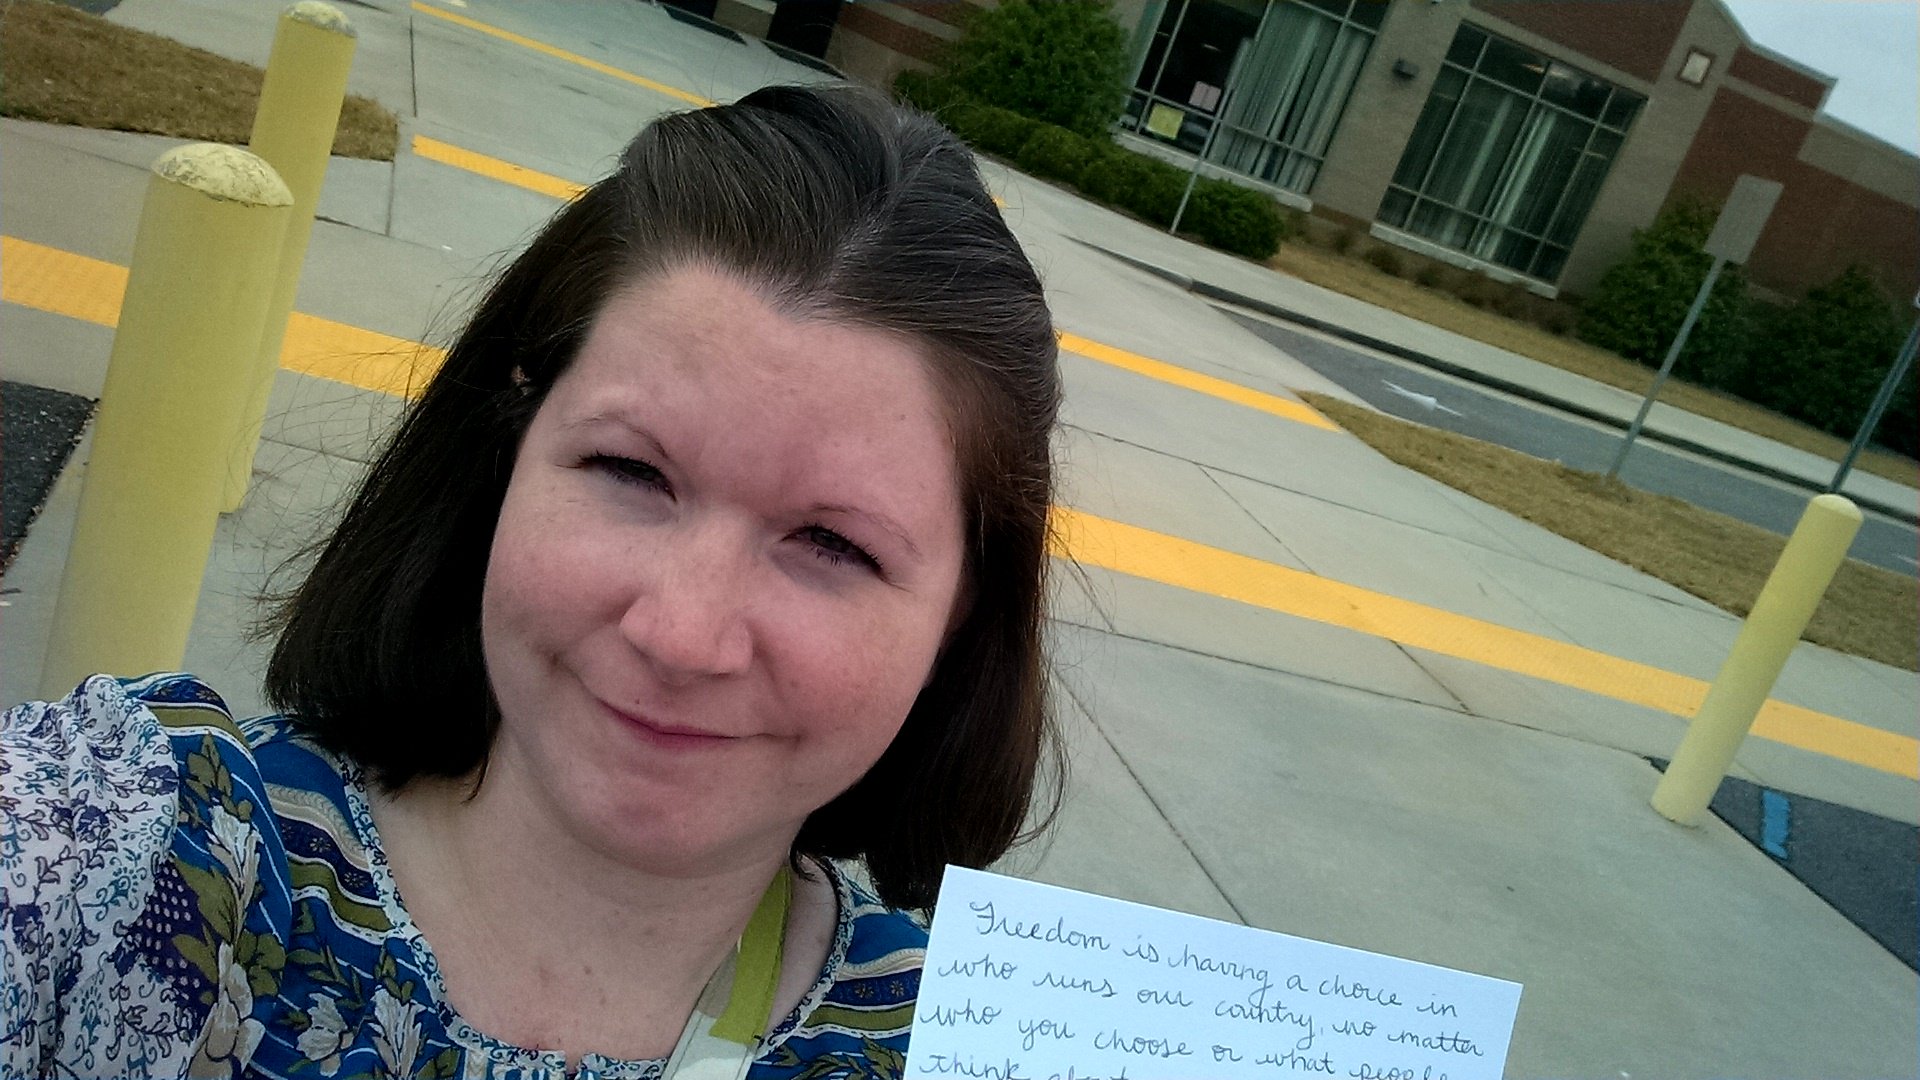 Freedom is having a choice in
who runs our country, no matter
who you choose or what people
think about